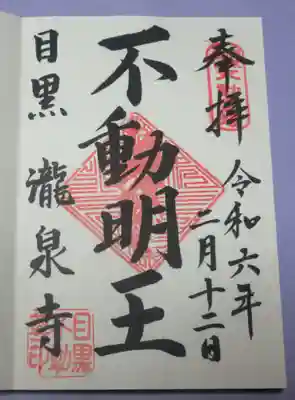 奉拝
令和六年
二月十二日
不動明王
目黒
瀧泉寺